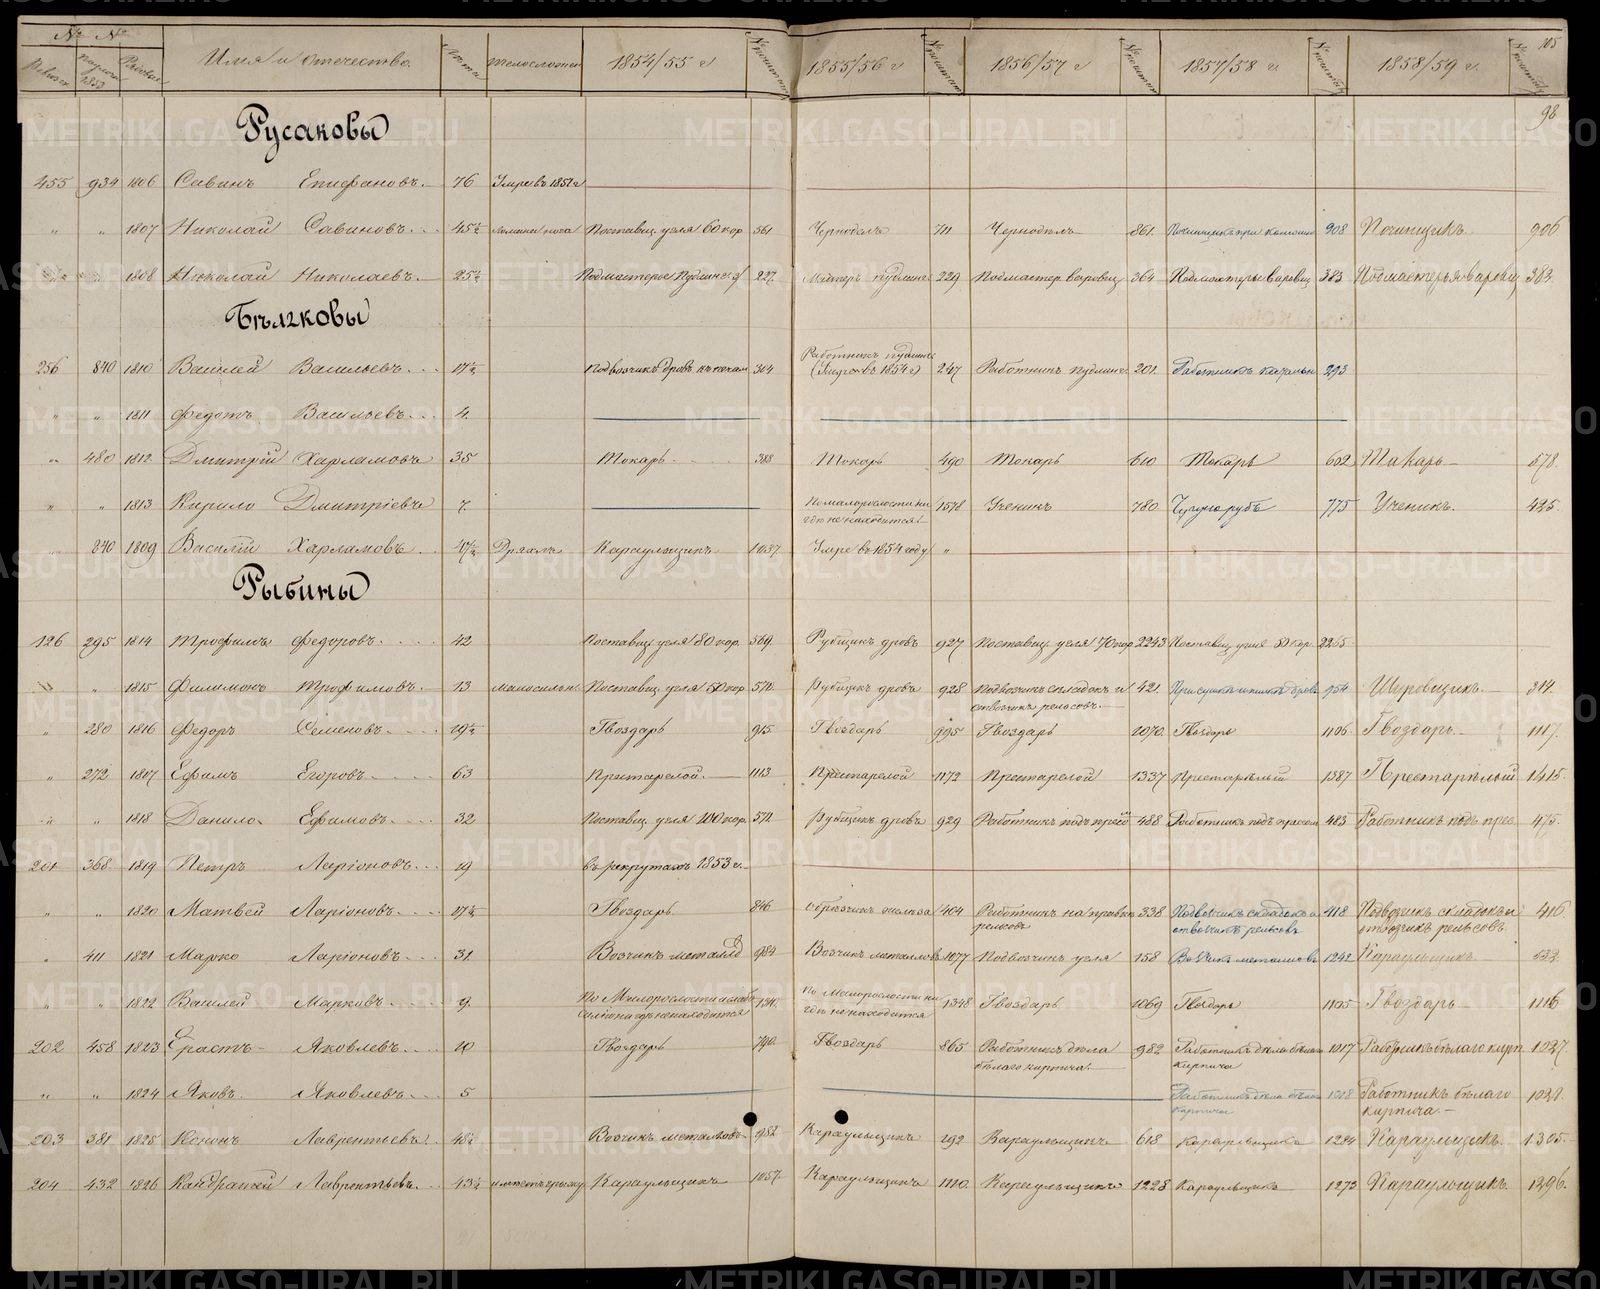 № № Имя и отечество Лета Телосложение 1854/55 г № 1855/56 г № 1856/57 г № 1857/58 г. № 1858/59 г. № 105
98
Русаковы
455 934 1806 Саванъ Епифановъ. 76 Умре въ 1851 г
" " 1807 Николай Савиновъ. 45½ Поставщ. угля 60 кор 561 Чернодѣлъ 711 Чернодѣлъ 861 908 Починщикъ. 906
" " 1808 Николай Николаевъ. 25½ Подмастерье Пудлинг. 227. Мастеръ пудлинг. 229 Подмастер. варовщ. 364 Подмастерье варовщ 383 Подмастерья варовщ 382.
Бѣлковы
256 840 1810 Василей Васильевъ. 17½ Подвозчикъ дровъ къ печам 304 Работникъ пудлинг. (Умре въ 1854 г) 247 Работникъ пудлинг. 201. Работникъ 293
" " 1811 Федотъ Васильевъ. 4.
" 480 1812 Дмитрій Харламовъ 35 Токарь 388 Токарь 490 Токарь 610 Токарь 602 Такарь 578.
" " 1813 Кирило Дмитріевъ 7. По малорослости ни гдѣ не находится 1578 Ученикъ 780 775 Ученикъ. 425.
840 1809 Василій Харламовъ. 47½ Дряхлъ Караульщикъ 1037 Умре въ 1854 году "
Рыбины
126 295 1814 Трофимъ Федоровъ. 42 Поставщ. угля 80 кор. 569. Рубщикъ дровъ 927 Поставщ. угля 70 кор 2243 Поставщ. угля 80 кор. 2255
" 1815 Филимонъ Трофимовъ. 13 Малосильн. Поставщ. угля 50 кор 570. Рубщикъ дровъ 928 Подвозчикъ складокъ и отвозчик рельсовъ 421. 954 Шуровщикъ. 314.
" 280 1816 Федоръ Семеновъ. 19½ Гвоздарь 915 Гвоздарь 995 Гвоздарь 1070. Гвоздарь 1106 Гвоздарь. 1117.
" 272 1817 Ефимъ Егоровъ. 63 Пристарелой. 1113 Пристарелой 1172 Пристарелой 1337 Престарѣлый 1387 Престарѣлый 1415.
" " 1818 Данило. Ефимовъ. 32 Поставщ. угля 100 кор. 572 Рубщикъ дровъ 929 Работникъ подъ прес 488 Работникъ подъ прессом 483 Работникъ подъ прес. 475.
201 368 1819 Петръ Ларіоновъ. 19 въ рекрутахъ 1853 г.
" " 1820 Матвей Ларіоновъ. 17½ Гвоздарь 846 Обрѣзчик желѣза 404 Работник на правки релсовъ 338 Подвозчикъ складокъ и отвозчикъ рельсовъ 418 Подвозчик складокъ и отвозчикъ рельсовъ. 416.
" 411 1821 Марко Ларіоновъ. 31. Возчик металло 984 Возчик металловъ 1077 Подвозчикъ угля 158 Возчик металловъ 1242 Караульщикъ 532.
" " 1822 Василей Марковъ. 9. По Малорослости 134. По Малорослости ни гдѣ не находится 1348 Гвоздарь 1069 Гвоздарь 1105 Гвоздарь 1116
202 458 1823 Ерастъ Яковлевъ. 10 Гвоздарь 790. Гвоздарь 865 Работникъ дѣла бѣлаго кирпича. 982 Работникъ дѣла бѣлаго кирпича 1017 Работникъ бѣлаго кирп 1027.
" " 1824 Яковъ. Яковлевъ. 5 Работникъ дѣла бѣлаго кирпича 1018 Работникъ бѣлаго кирпича. 1028.
203 381 1825 Кононъ Лаврентьевъ. 48½ Возчик металловъ 982 Караульщикъ 292 Караульщикъ 618 Караульщикъ 1284 Караульщикъ. 1305.
204 432 1826 Кандратей Лаврентьевъ. 43½ имѣетъ грыжу Караульщикъ 1057 Караульщикъ 1110. Караульщикъ 1228 Караульщикъ 1273 Караульщикъ. 1296.
METRIKI.GASO-URAL.RU